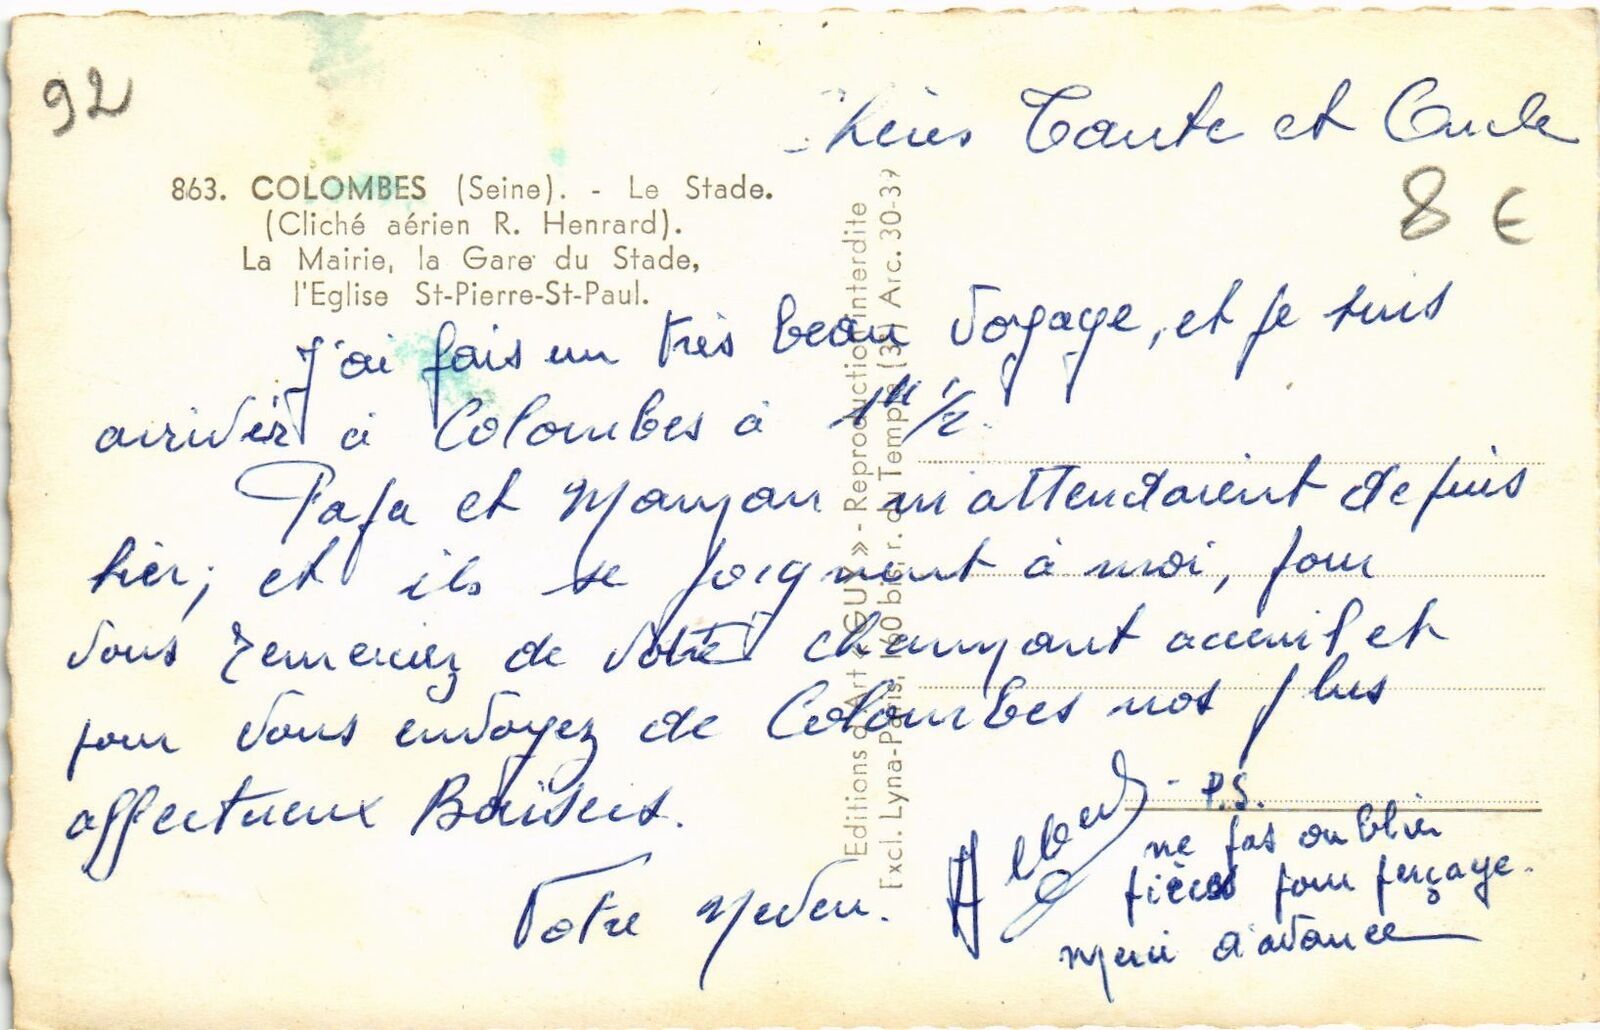 92
Chères Tante et Oncle
8 €
863. COLOMBES (Seine). - Le Stade.
(Cliché aérien R. Henrard).
La Mairie, la Gare du Stade,
l'Eglise St-Pierre-St-Paul.
J'ai fais un très beau voyage, et je suis
arrivér à Colombes à 1H 1/2.
Papa et Maman m'attendaient depuis
hier; et ils se joignent à moi, pour
vous remerciez de votre charmant acceuil et
pour vous envoyez de Colombes nos plus
affectueux Baisers.
Votre Neveu. Albert
- P.S.
ne pas oublier
pièces pour perçage.
Merci d'avance
Editions d'Art « GUY » - Reproduction interdite
Excl. Lyna-Paris, 160 bis, r. du Temple (3e) Arc. 30-37